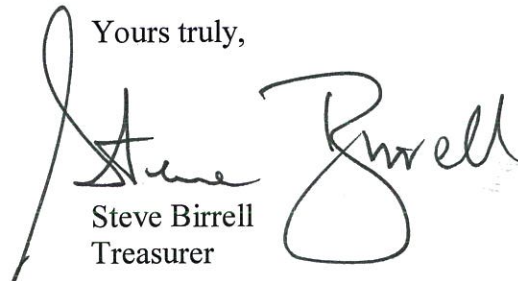 Yours truly,
Steve Birrell
Steve Birrell
Treasurer